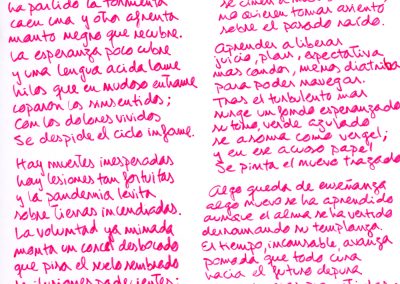 ha partido la tormenta
caen una y otra afrenta
manto negro que recubre.
La esperanza poco cubre
y una lengua acida lame
hilos que en nudoso entrame
coparon los sinsentidos;
Con los dolores vividos
Se despide el ciclo infame.
Hay muertes inesperadas
hay lesiones tan fortuitas
y la pandemia levita
sobre tierras incendiadas.
La voluntad ya minada
monta un corcel desbocado
que pisa el suelo sembrado
ilusiones padecientes;
no quieren tomar asiento
sobre el pasado raído.
Aprender a liberar
juicio, plan, expectativa
mas candor, menos diatriba
para poder navegar.
Tras el turbulento mar
surge un fondo esperanzado
su tono, verde azulado
se asoma como vergel;
y en ese acuoso papel
Se pinta el nuevo trazado
Algo queda de enseñanza
algo nuevo se ha aprendido
aunque el alma se ha vertido
derramando su templanza
El tiempo, incansable, avanza
pomada que todo cura
hacia el futuro depura